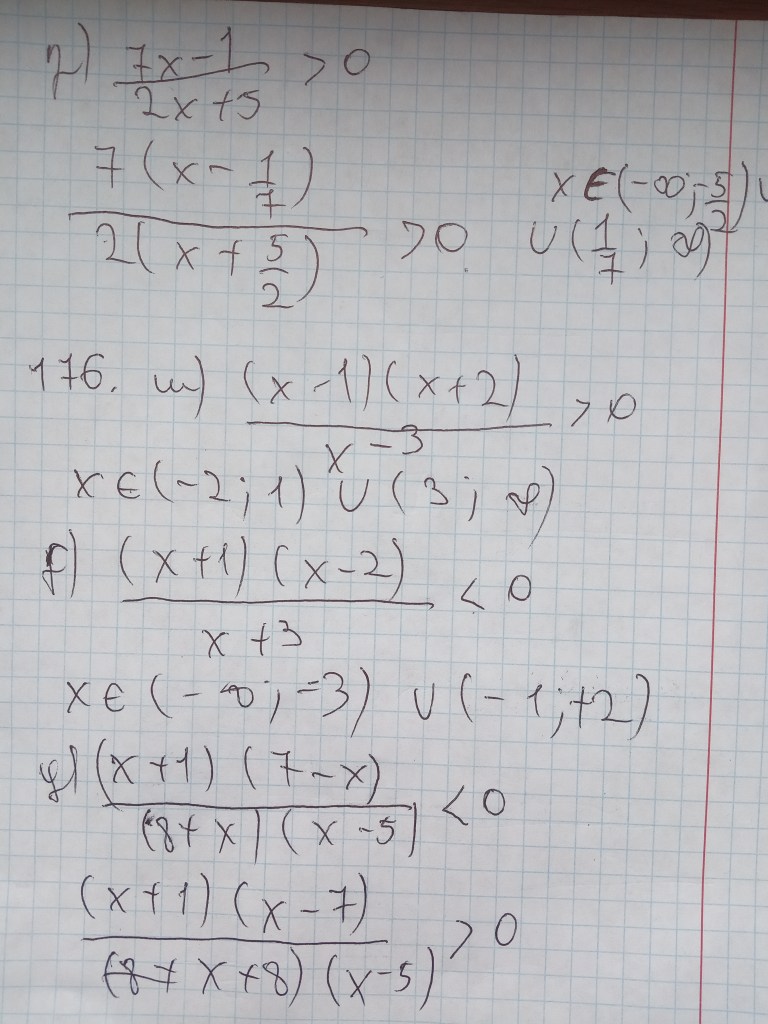 г) (7x-1)/(2x+5) > 0
7(x - 1/7)/2(x + 5/2) > 0. x ∈ (-∞; -5/2) ∪
∪ (1/7; ∞)
176. ш) (x-1)(x+2)/(x-3) > 0
x ∈ (-2; 1) ∪ (3; ∞)
г) (x+1)(x-2)/(x+3) < 0
x ∈ (-∞; -3) ∪ (-1; +2)
g) (x+1)(7-x)/(8+x)(x-5) < 0
(x+1)(x-7)/(x+8)(x-5) > 0